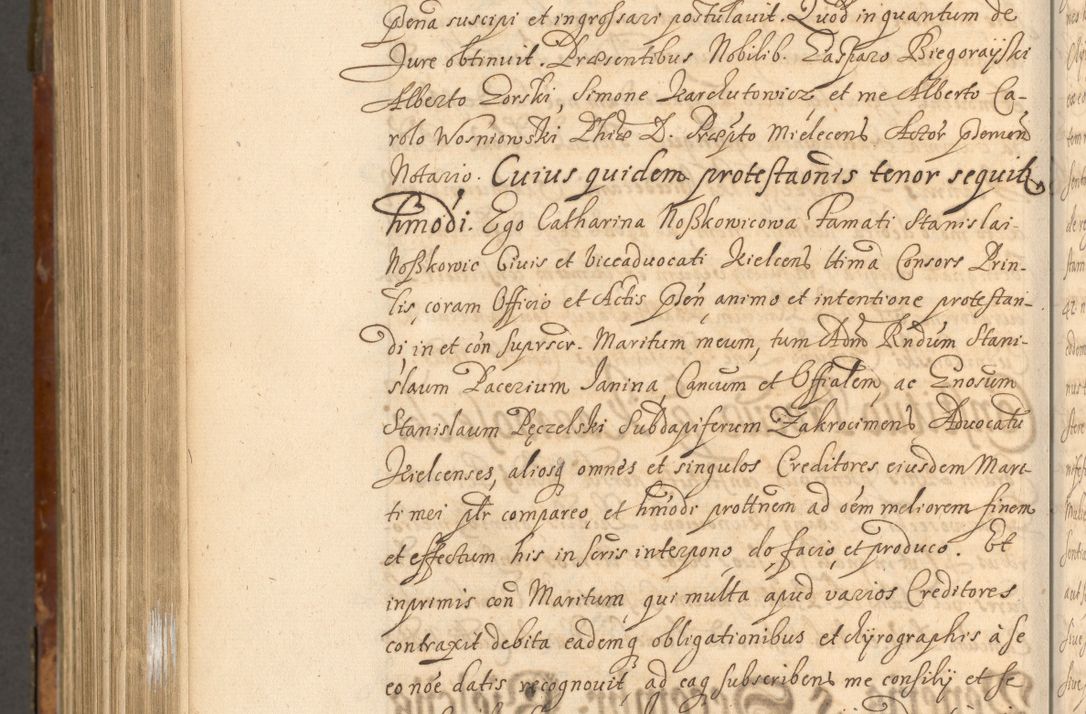 pena suscipi et ingrossari postulavit. Quod in quantum de
Jure obtinuit. Præsentibus Nobilib. Casparo Biegorayski
Alberto Zorski, Simone Karchutowicz et me Alberto Ca-
rolo Wosniowski Phiæ D. Præpto Mielecens Actor
Notario. Cuius quidem protestaonis tenor sequit
hmodi. Ego Catharina Noßkowicowa Famati Stanislai
Noßkowic Civis et Viceadvocati Kielcens ltima Consors Prin-
lis, coram Officio et Actis pñ animo et intentione protestan-
di, in et con suprscr. Maritum meum, tum Adm Rndum Stani-
slaum Pacerium Janina, Cancum et Offialem, ac Gnosum
Stanislaum Pęczelski Subdapiferum Zakrocimens Advocatu
Kielcenses, aliosq omnes et singulos Creditores eiusdem Mari-
ti mei plr compareo, et hmodi prottnem ad oem meliorem finem
et effectum his in scris interpono, do facio, et produco. Et
inprimis con Maritum, qui multa apud varios Creditores
contraxit debita eademq obligationibus et chyrographis à se
eo noe datis recognovit, ad eaq subscribens me consilij et se